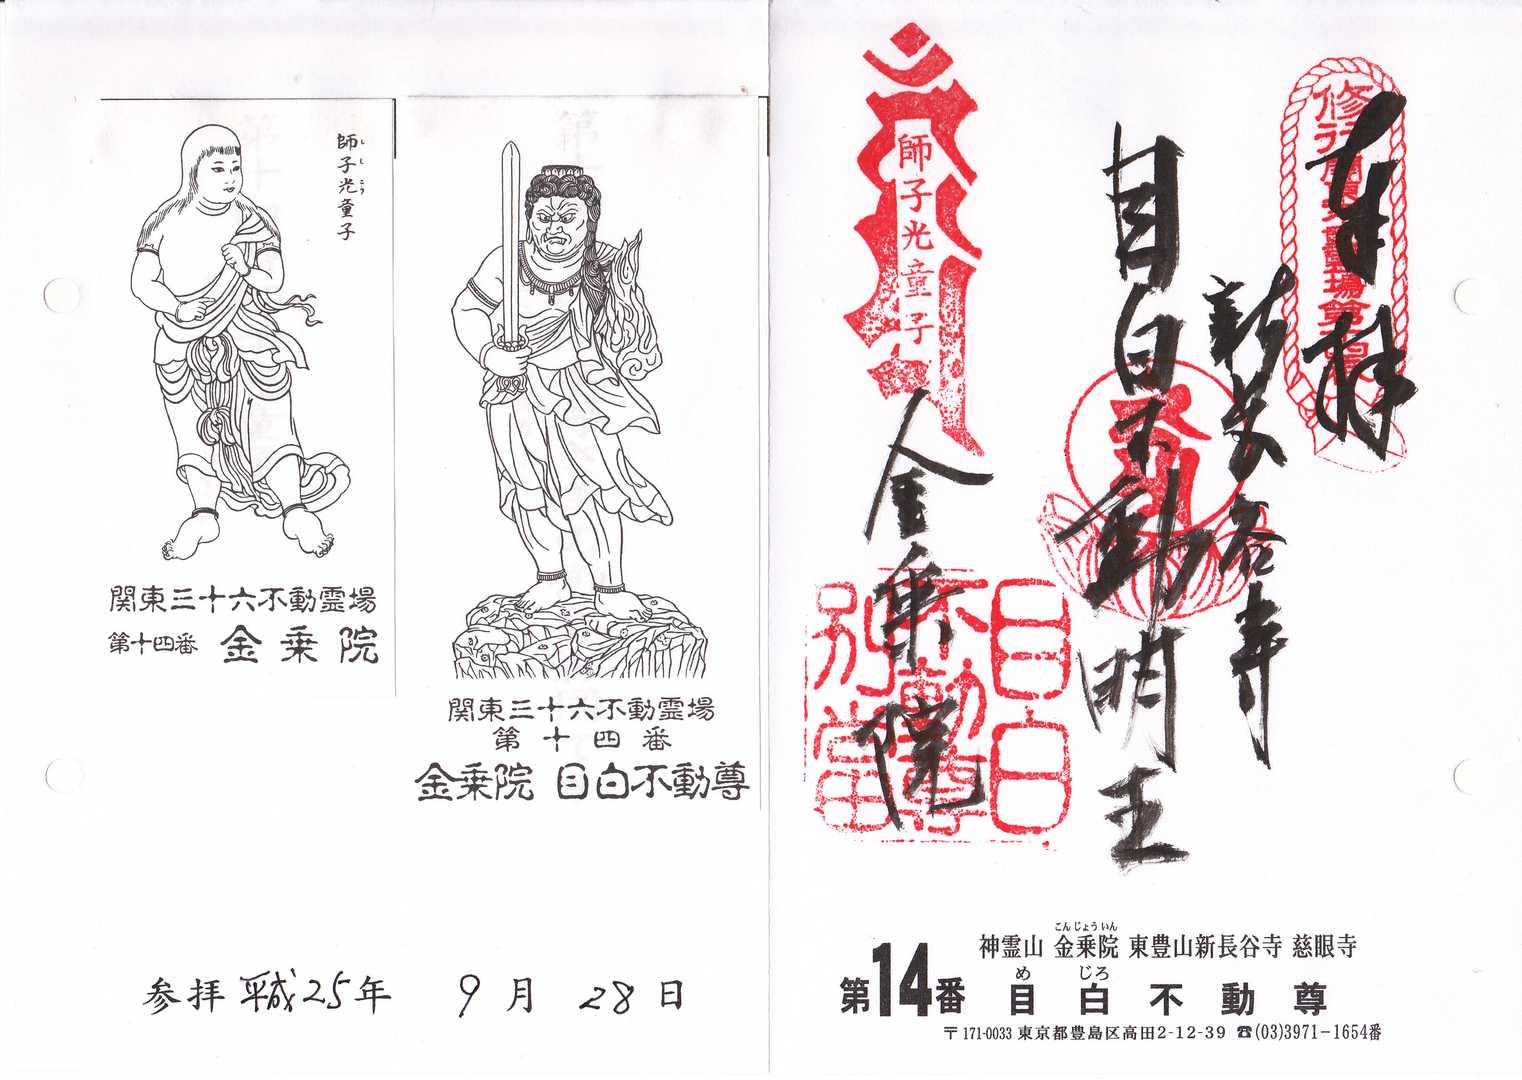 師子光童子
しし こう
関東三十六不動霊場
第十四番 金乗院
関東三十六不動霊場
第十四番
金乗院 目白不動尊
参拝 平成25年 9月 28日
奉拝
新長谷寺
目白不動明王
金乗院
師子光童子
目白
不動尊
別當
神霊山 金乗院 東豊山新長谷寺 慈眼寺
こんじょういん
第14番 目白不動尊
め じろ
〒171-0033 東京都豊島区高田2-12-39 ☎(03)3971-1654番